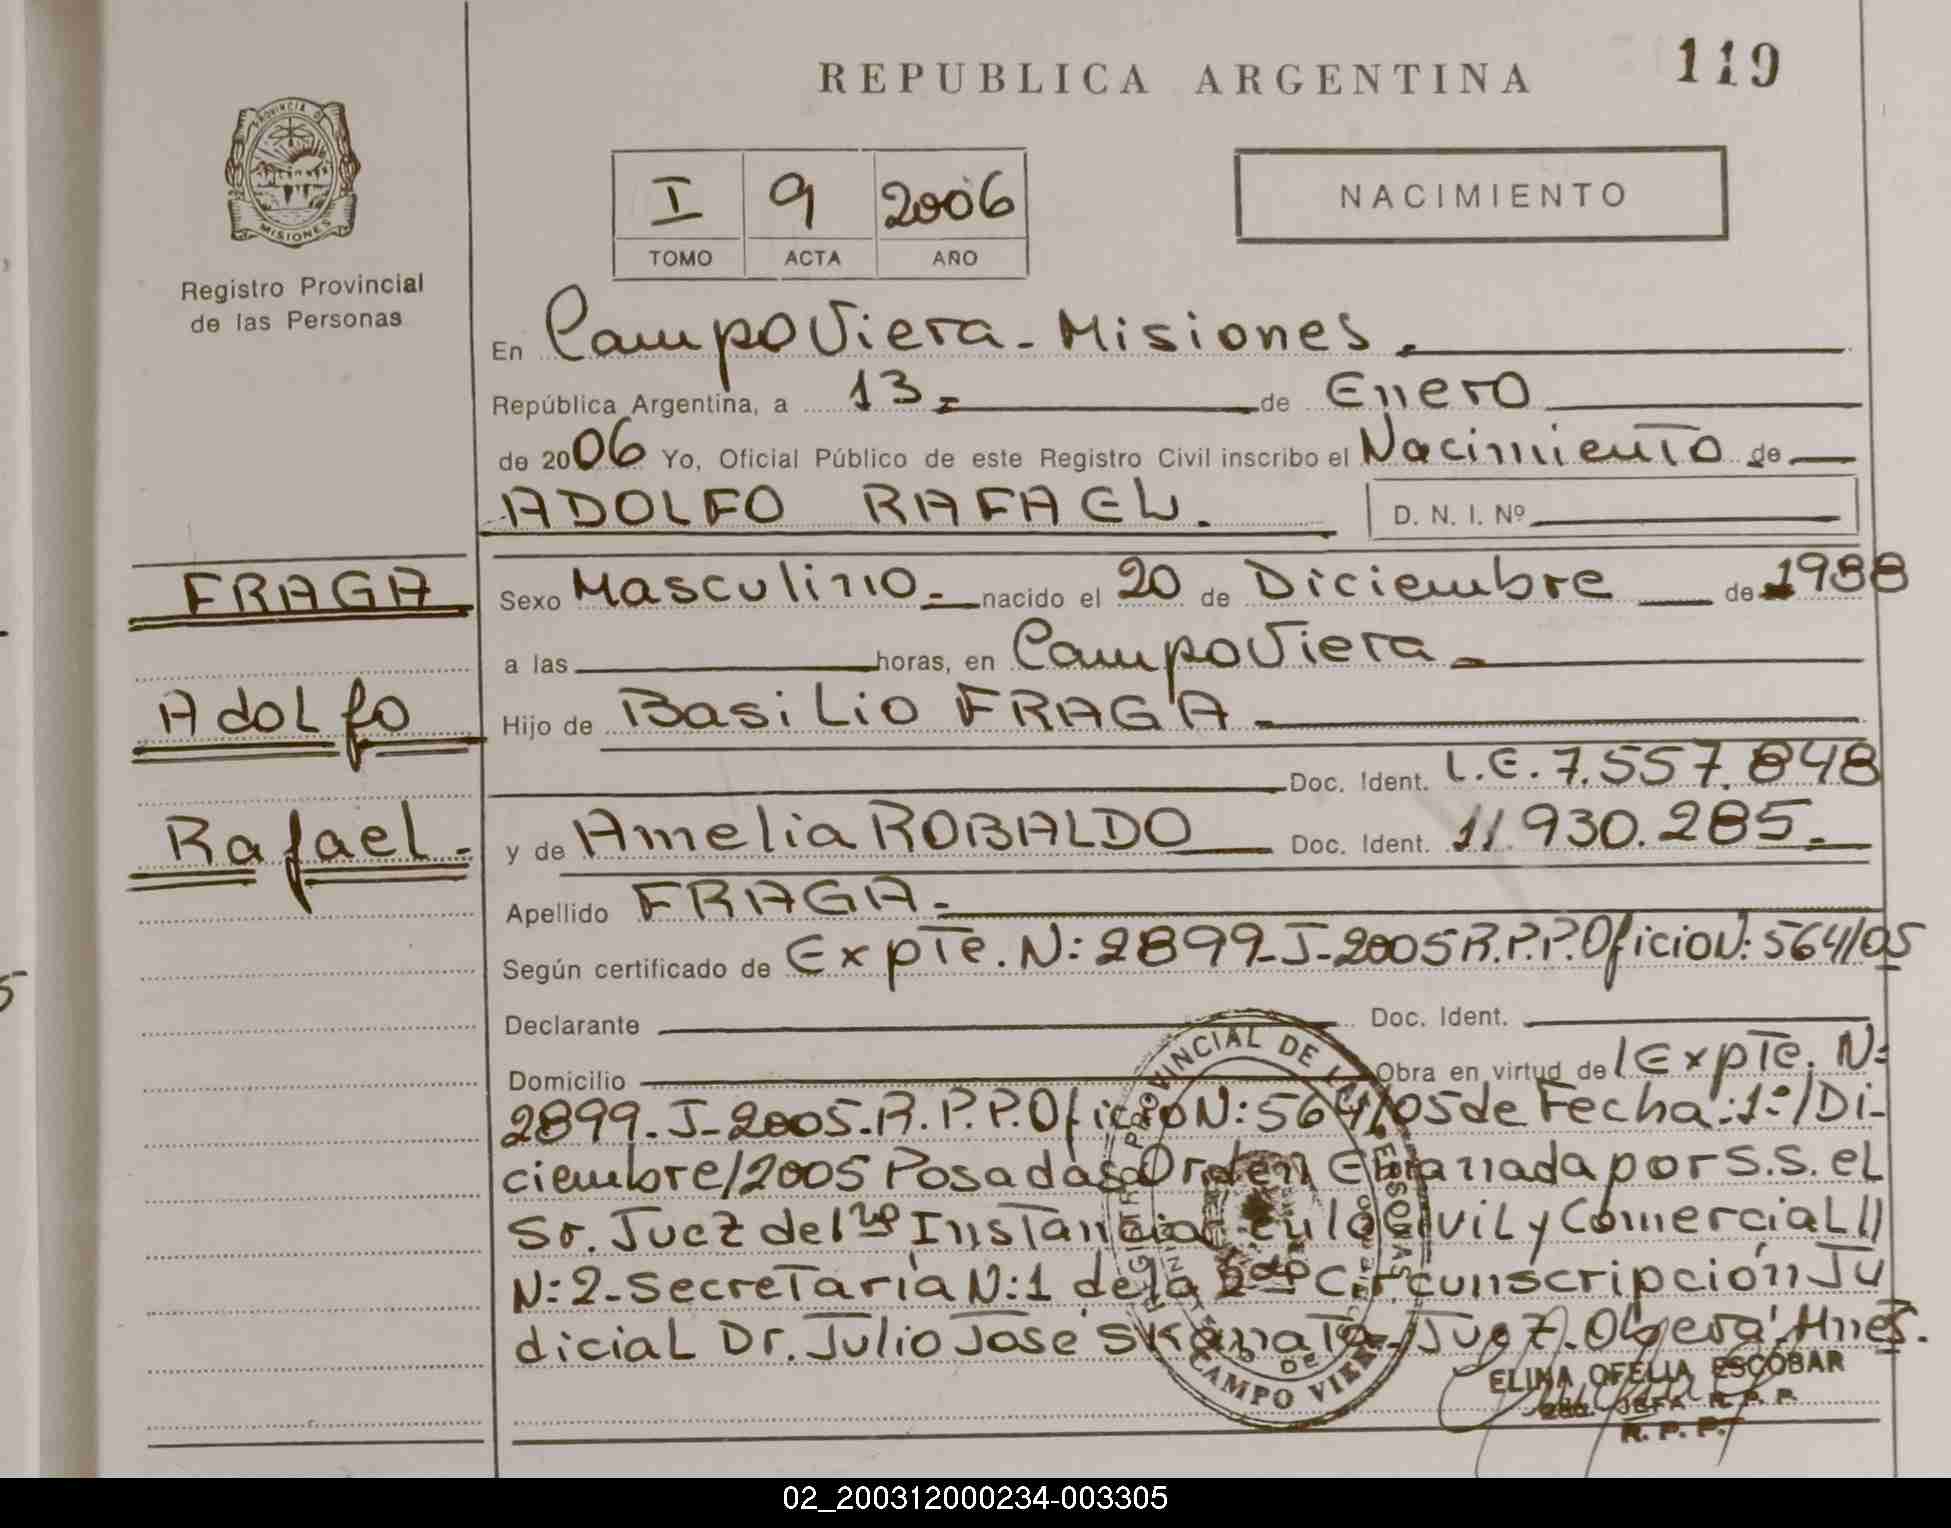 REPUBLICA ARGENTINA
119
PROVINCIA DE
MISIONES
Registro Provincial
de las Personas
I 9 2006
TOMO ACTA AÑO
NACIMIENTO
En Campo Viera - Misiones.
República Argentina, a 13 de Enero
de 2006 Yo, Oficial Público de este Registro Civil inscribo el Nacimiento de
ADOLFO RAFAEL.
D. N. I. Nº
FRAGA
Adolfo
Rafael.
Sexo Masculino nacido el 20 de Diciembre de 1988
a las horas, en Campo Viera
Hijo de Basilio FRAGA
Doc. Ident. L.E. 7.557.848
y de Amelia ROBALDO Doc. Ident. 11.930.285.
Apellido FRAGA.
Según certificado de Expte. N: 2899-J-2005 R.P.P. Oficio N: 564/05
Declarante Doc. Ident.
Domicilio Obra en virtud de l Expte. N:
2899-J-2005-R.P.P. Oficio N: 564/05 de Fecha: 1º/Di-
ciembre/2005 Posadas Orden Emanada por S.S. el
Sr. Juez de 1ra Instancia en lo Civil y Comercial
N:2-Secretaría N:1 de la 2da Circunscripción Ju
dicial Dr. Julio José Skanata-Juez. Oberá, Mnes.
CAMPO VIERA
ELINA OFELIA ESCOBAR
2da. JEFA R.P.P.
R.P.P.
02_200312000234-003305